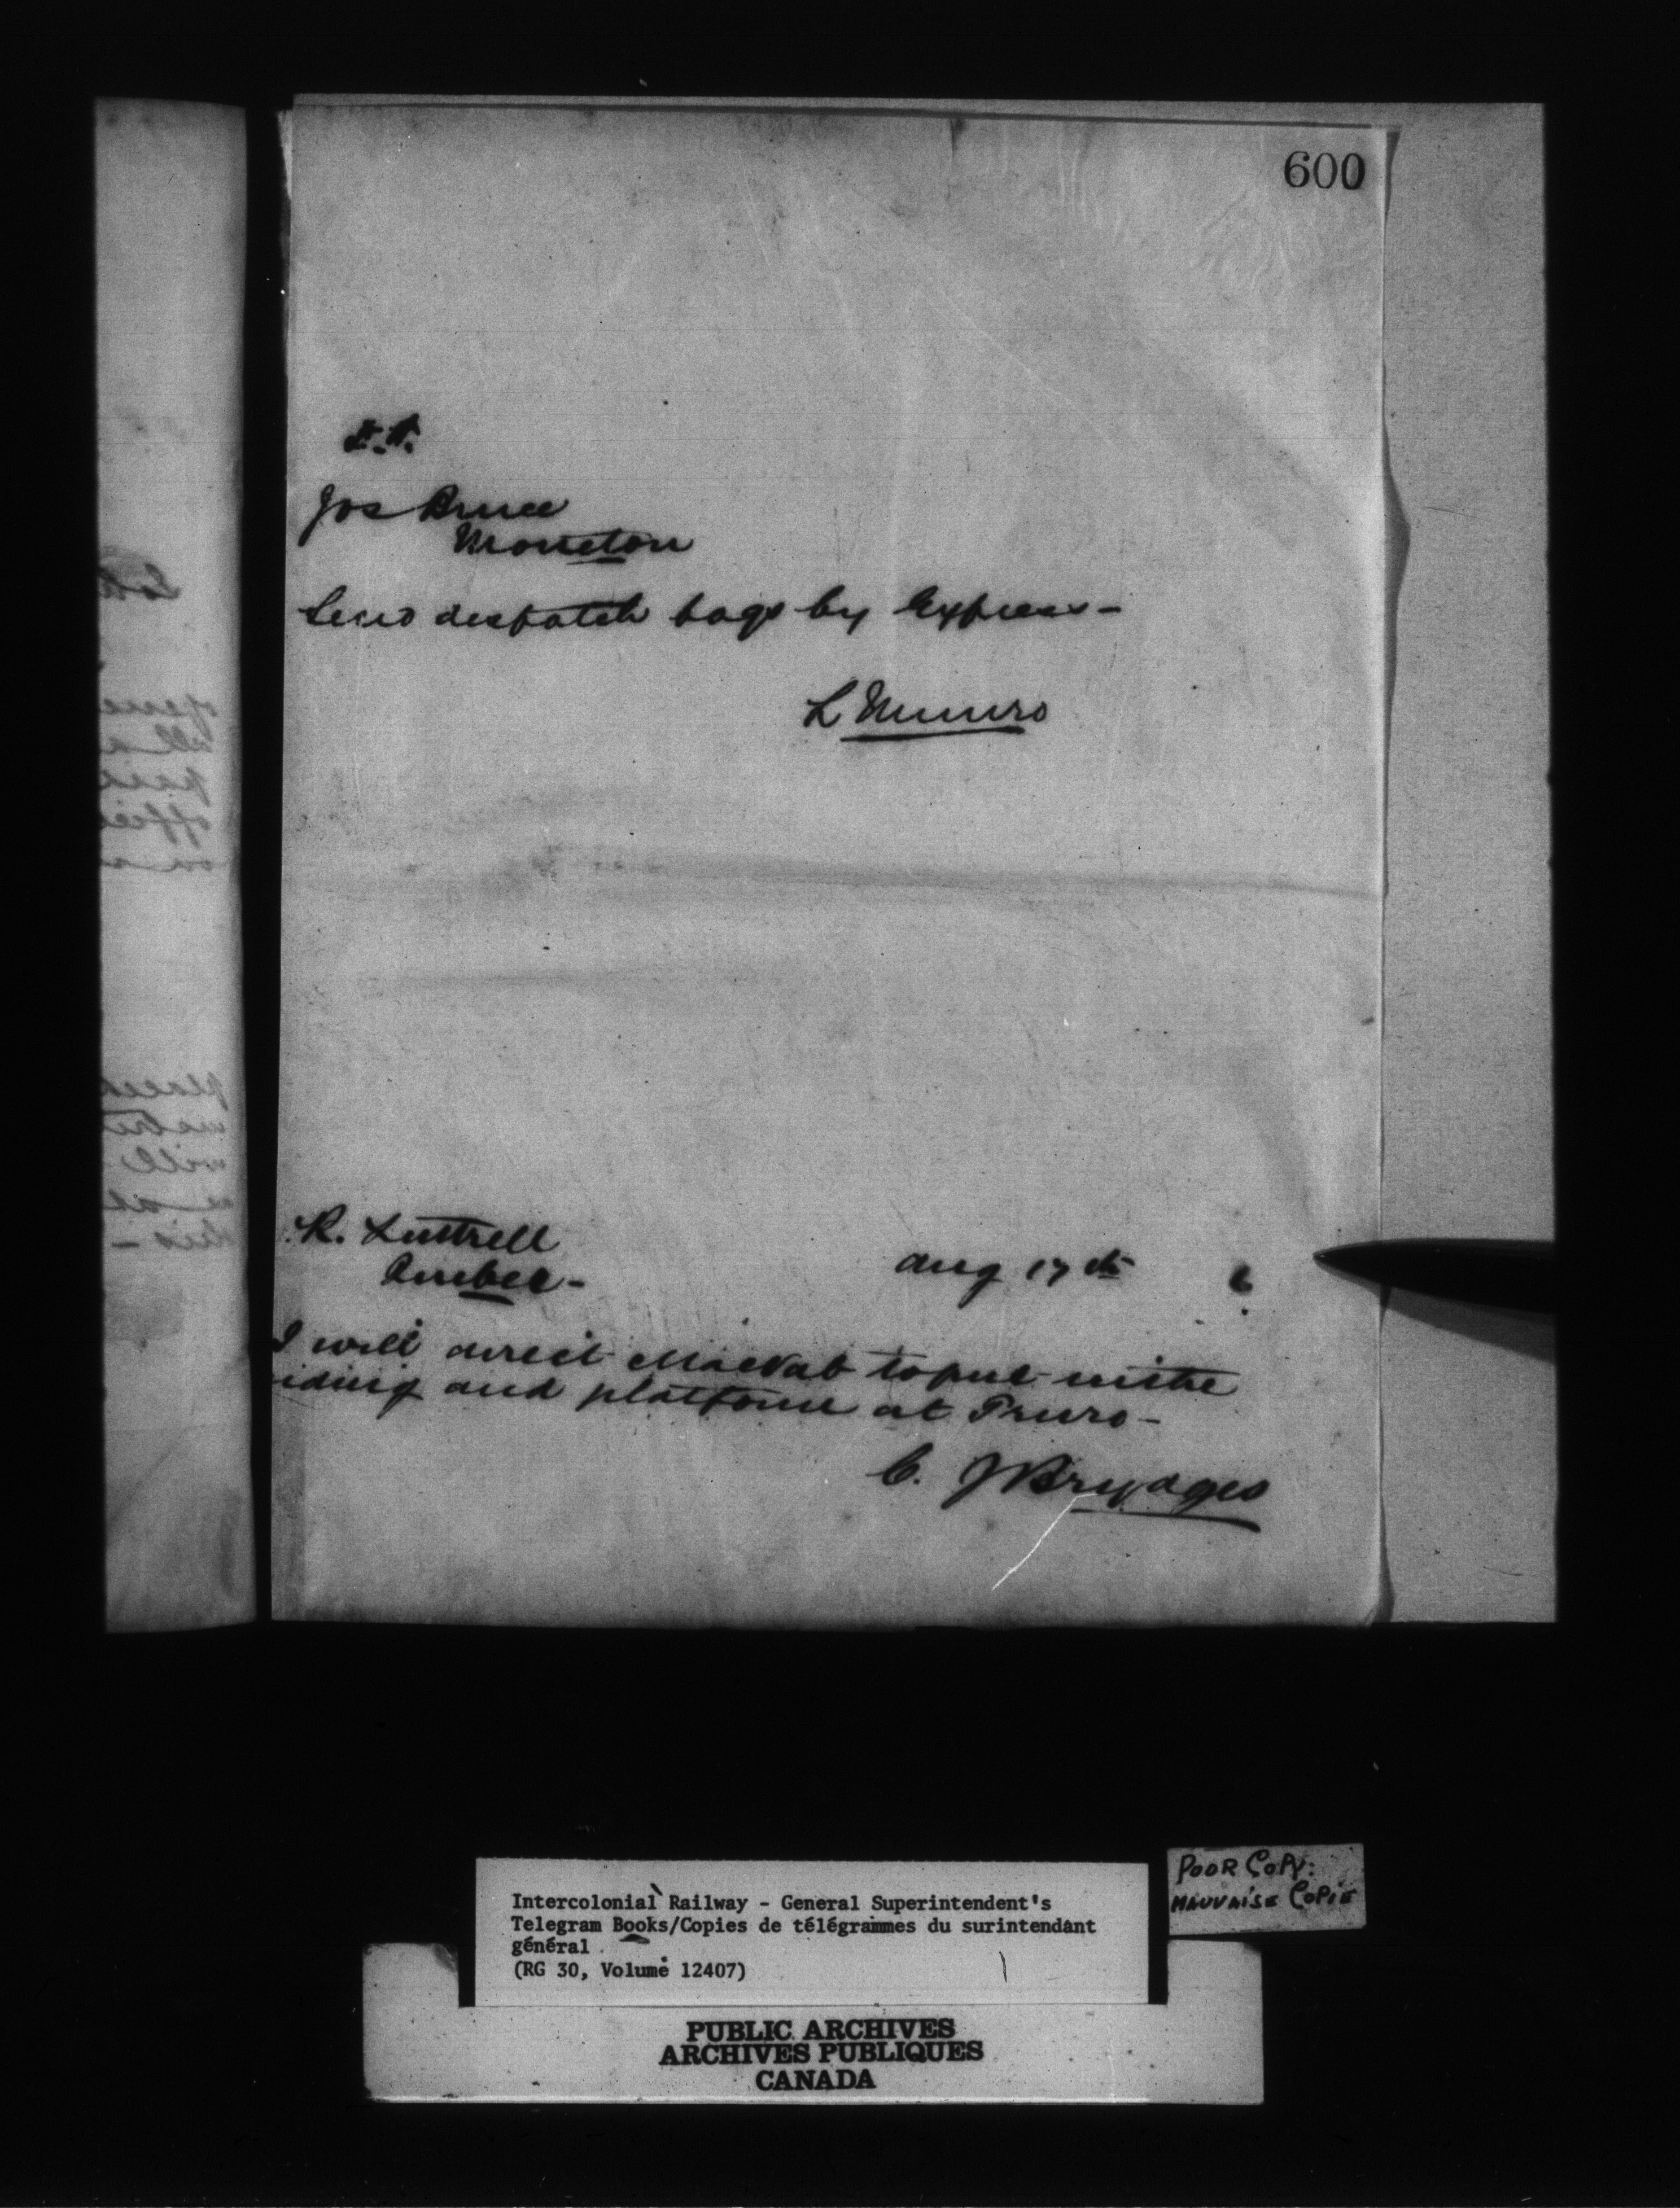 600
Jos Bruce
Moncton
Send despatch bags by Express -
L Munro
R. Luttrell
Aug 17th 6
I will direct MacNab to put in the
iding and platform at Truro -
C. J Brydges
POOR COPY:
MAUVAISE COPIE
Intercolonial Railway - General Superintendent's
Telegram Books/Copies de télégrammes du surintendant
général
(RG 30, Volume 12407)
PUBLIC ARCHIVES
ARCHIVES PUBLIQUES
CANADA